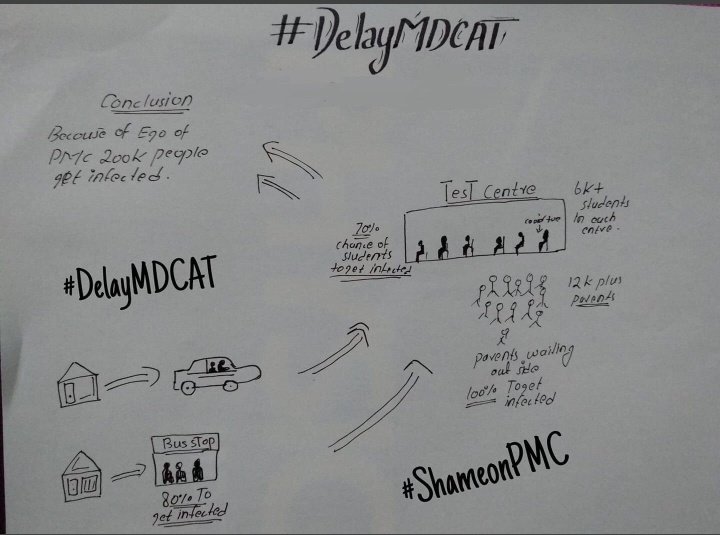 #DelayMDCAT
Conclusion
Because of Ego of
PMC 200k people
get infected.
Test Centre
6k+
students
in each
centre.
covid +ve
70%
chance of
students
to get infected
#DelayMDCAT
12k plus
parents
parents waiting
out side
100% To get
infected
Bus stop
80% To
get infected
#ShameonPMC